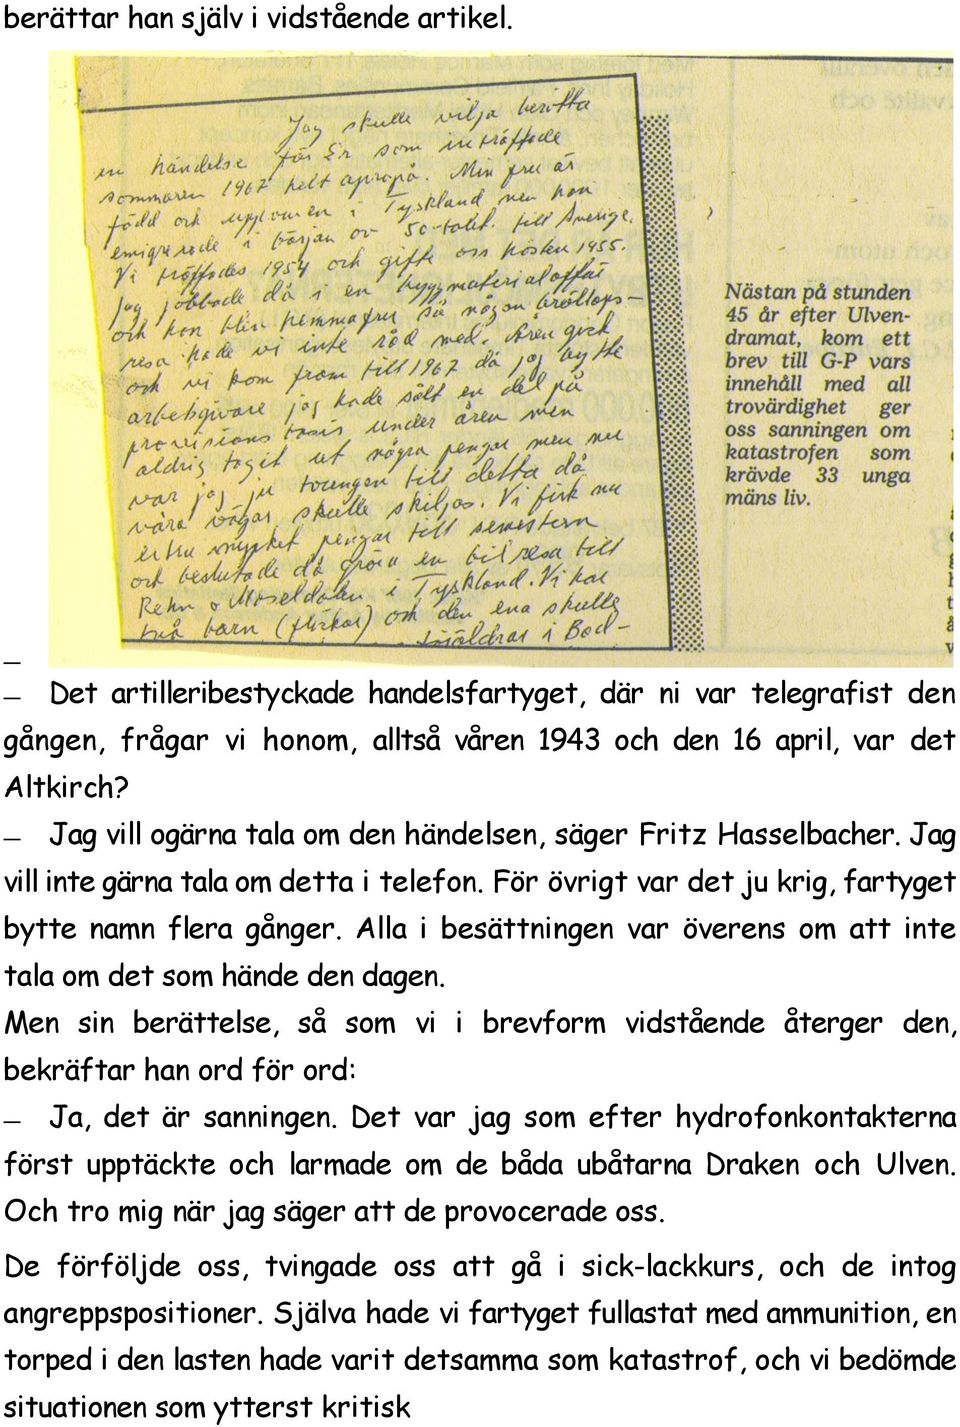 berättar han själv i vidstående artikel.
Jag skulle vilja berätta
en händelse för Er som inträffade
sommaren 1967 helt apropå. Min fru är
född och uppvuxen i Tyskland men hon
emigrerade i början av 50-talet till Sverige.
Vi träffades 1954 och gifte oss hösten 1955.
Jag jobbade då i en byggmaterialaffär
och hon blev hemmafru så någon bröllops-
resa hade vi inte råd med. Åren gick
och vi kom fram till 1967 då jag bytte
arbetsgivare jag hade sålt en del på
provisions basis under åren men
aldrig tagit ut några pengar men nu
var jag ju tvungen till detta då
våra vägar skulle skiljas. Vi fick nu
extra mycket pengar till semestern
och beslutade då göra en bilresa till
Rehn o Moseldalen i Tyskland. Vi har
två barn (flickor) och den ena skulle
föräldrar i Bod-
Nästan på stunden
45 år efter Ulven-
dramat, kom ett
brev till G-P vars
innehåll med all
trovärdighet ger
oss sanningen om
katastrofen som
krävde 33 unga
mäns liv.
—
— Det artilleribestyckade handelsfartyget, där ni var telegrafist den
gången, frågar vi honom, alltså våren 1943 och den 16 april, var det
Altkirch?
— Jag vill ogärna tala om den händelsen, säger Fritz Hasselbacher. Jag
vill inte gärna tala om detta i telefon. För övrigt var det ju krig, fartyget
bytte namn flera gånger. Alla i besättningen var överens om att inte
tala om det som hände den dagen.
Men sin berättelse, så som vi i brevform vidstående återger den,
bekräftar han ord för ord:
— Ja, det är sanningen. Det var jag som efter hydrofonkontakterna
först upptäckte och larmade om de båda ubåtarna Draken och Ulven.
Och tro mig när jag säger att de provocerade oss.
De förföljde oss, tvingade oss att gå i sick-lackkurs, och de intog
angreppspositioner. Själva hade vi fartyget fullastat med ammunition, en
torped i den lasten hade varit detsamma som katastrof, och vi bedömde
situationen som ytterst kritisk